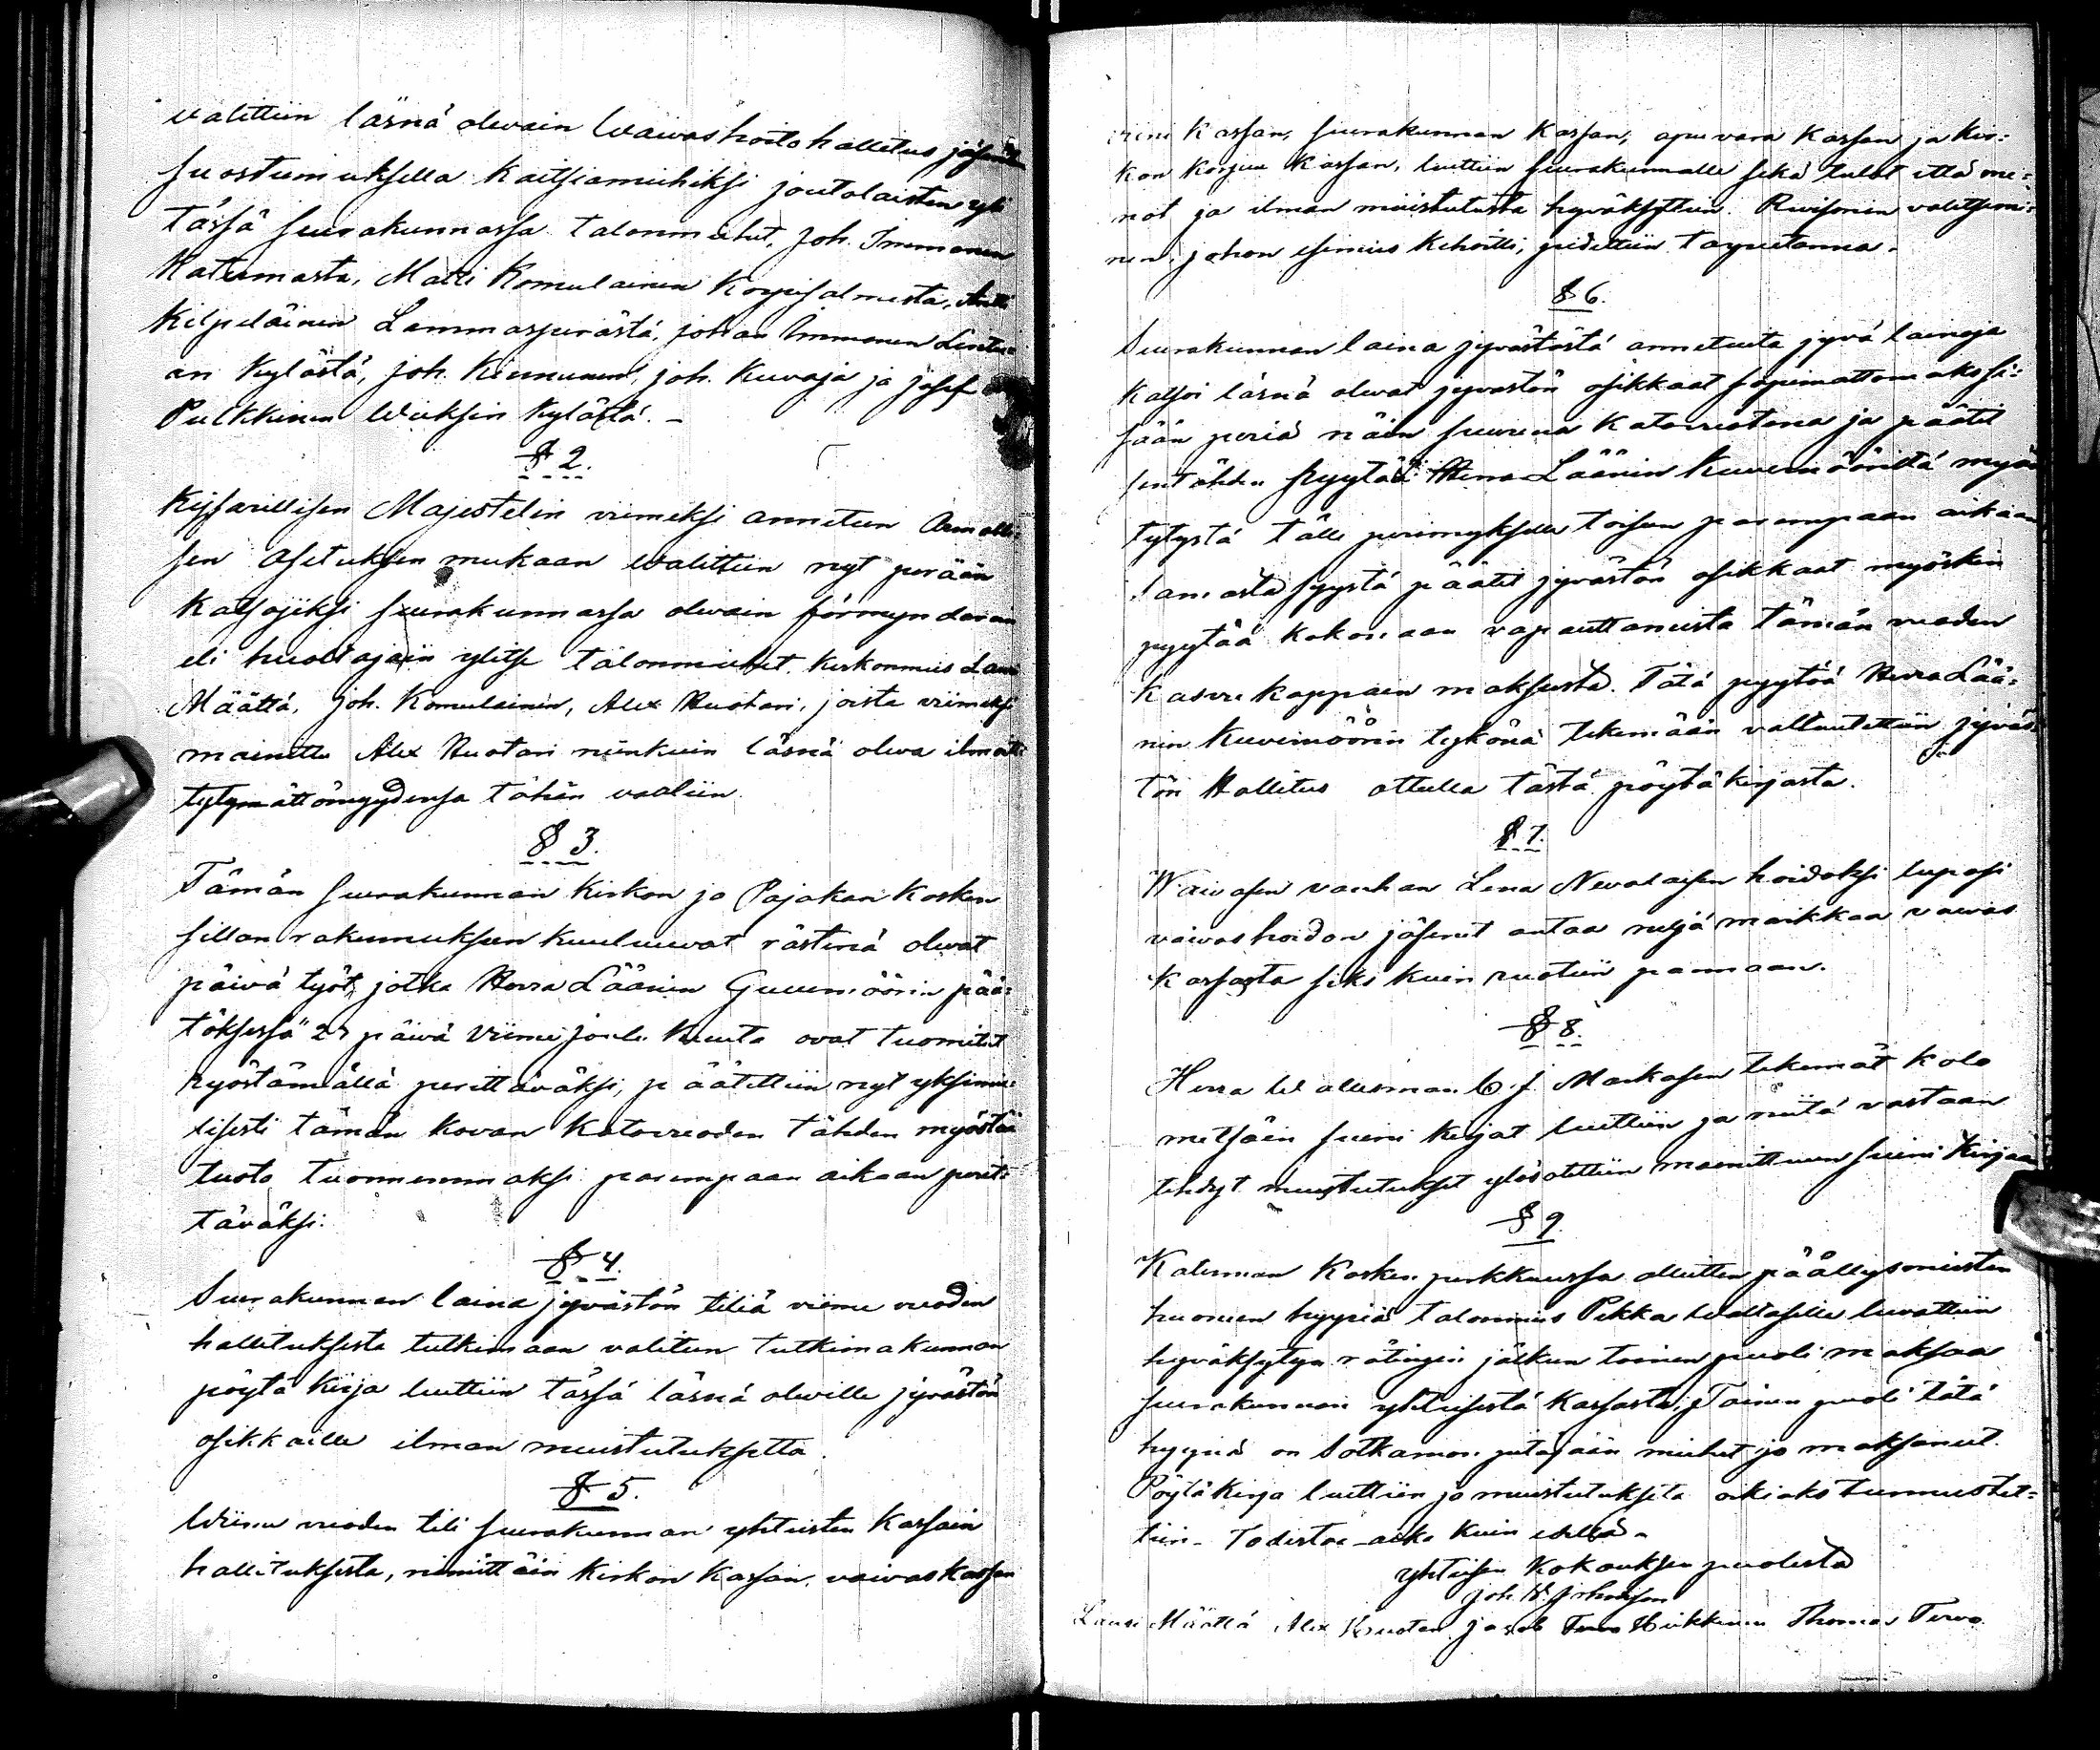 valittiin läsnä olevain Waivashoito hallitus jäsenten
suostumuksella kaitsiamiehiksi joutolaisten yli
tässä seurakunnassa talonmiehet, Joh. Immonen
Katermasta, Matti Komulainen Korpisalmesta, Antti
Kilpeläinen Lammasperästä, Johan Immonen Lentu-
an kylästä, Joh. Kinnunen, Joh. Kuvaja ja Josef
Pulkkinen Wieksin kylästä. -
§ 2.
Keisarillisen Majestetin viimeksi annetun Armolli-
sen asetuksen mukaan walittiin nyt perään
katsojiksi seurakunnassa olevain förmyndarein
eli huoltajain ylitse talonmiehet, kirkonmies Lauri
Määttä, Joh. Komulainen, Alex Huotari, joista viimeksi
mainittu Alex Huotari niinkuin läsnä oleva ilmoitti
tytymättömyydensä tähän vaaliin.
§ 3.
Tämän seurakunnan kirkon ja Pajakan kosken
sillan rakennukseen kuuluwat rästinä olevat
päivä työt, jotka Herra Läänin Guvernöörin pää-
töksessä 27 päivä viime joulu kuuta ovat tuomitut
ryöstämällä perittäväksi, päätettiin nyt yksimie-
lisesti tämän kovan katovuoden tähden myöstää
tuoto tuonnemmaksi parempaan aikaan perit-
täväksi.
§ 4.
Seurakunnan laina jyvästön tiliä viime vuoden
hallituksesta tutkimaan valitun tutkimakunnan
pöytä kirja luettiin tässä läsnä oleville jyvästön
osikkaille ilman muistutuksetta.
§ 5.
Wiime vuoden tili seurakunnan yhteisten kassain
hallituksesta, nimittäin kirkon kassan, vaivaskassan
kassan, seurakunnan kassan, apuvara kassan ja kir-
kon korjuu kassan, luettiin seurakunnalle sekä tulot että me-
not ja ilman muistutusta hyväksyttiin. Reviisorein valitsemi-
nen, johon esimies kehoitti, pidettiin tarpeetonna.
§ 6.
Seurakunnan laina jyvästöstä annetuita jyvä lainoja
katsoi läsnä olevat jyvästön osikkaat sopimattomaksi
sään periä näin suurena katovuotena ja päätti
sentähden pyytää Herra Läänin Kuvernööriltä myön
tytystä tälle perimykselle toiseen parempaan aikaan
Samasta syystä päätit jyvästön osikkaat myöskin
pyytää kokonaan vapauttamista tämän vuoden
kasvu kappain maksusta. Tätä pyytöä Herra Lää-
nin Kuvernöörin tykönä tekemään valtuutettiin jyväs-
tön Hallitus ottulla tästä pöytäkirjasta.
§ 7.
Waivasen vanhan Lena Nevalaisen hoidoksi lupasi
vaivashoidon jäsenet antaa neljä markkaa vaivas
kassasta siks kuin ruotiin pannaan.
§ 8.
Herra Wallesman C. J. Markasen tekemät kolo
metsäin syyni kirjat luettiin ja niitä vastaan
tehdyt muistutukset ylösotettiin mainittuun syyni kirjaan
§ 9.
Katerman Kosken perkkuussa olleitten päällysmiesten
huoneen hyyriä talonmies Pekka Waltaselle luvattiin
hyväksytyn rätingin jälkeen toinen puoli maksaa
seurakunnan yhteisestä kassasta; Toinen puoli tätä
hyyriä on Sotkamon pitäjään miehet jo maksaneet.
Pöytäkirja luettiin ja muistutuksita oikiaks tunnustet-
tiin. Todistaa aika kuin edellä.
yhteisen kokouksen puolesta
Lauri Määttä Alex Huotari Jacob Tervo Heikkinen Thomas Tervo